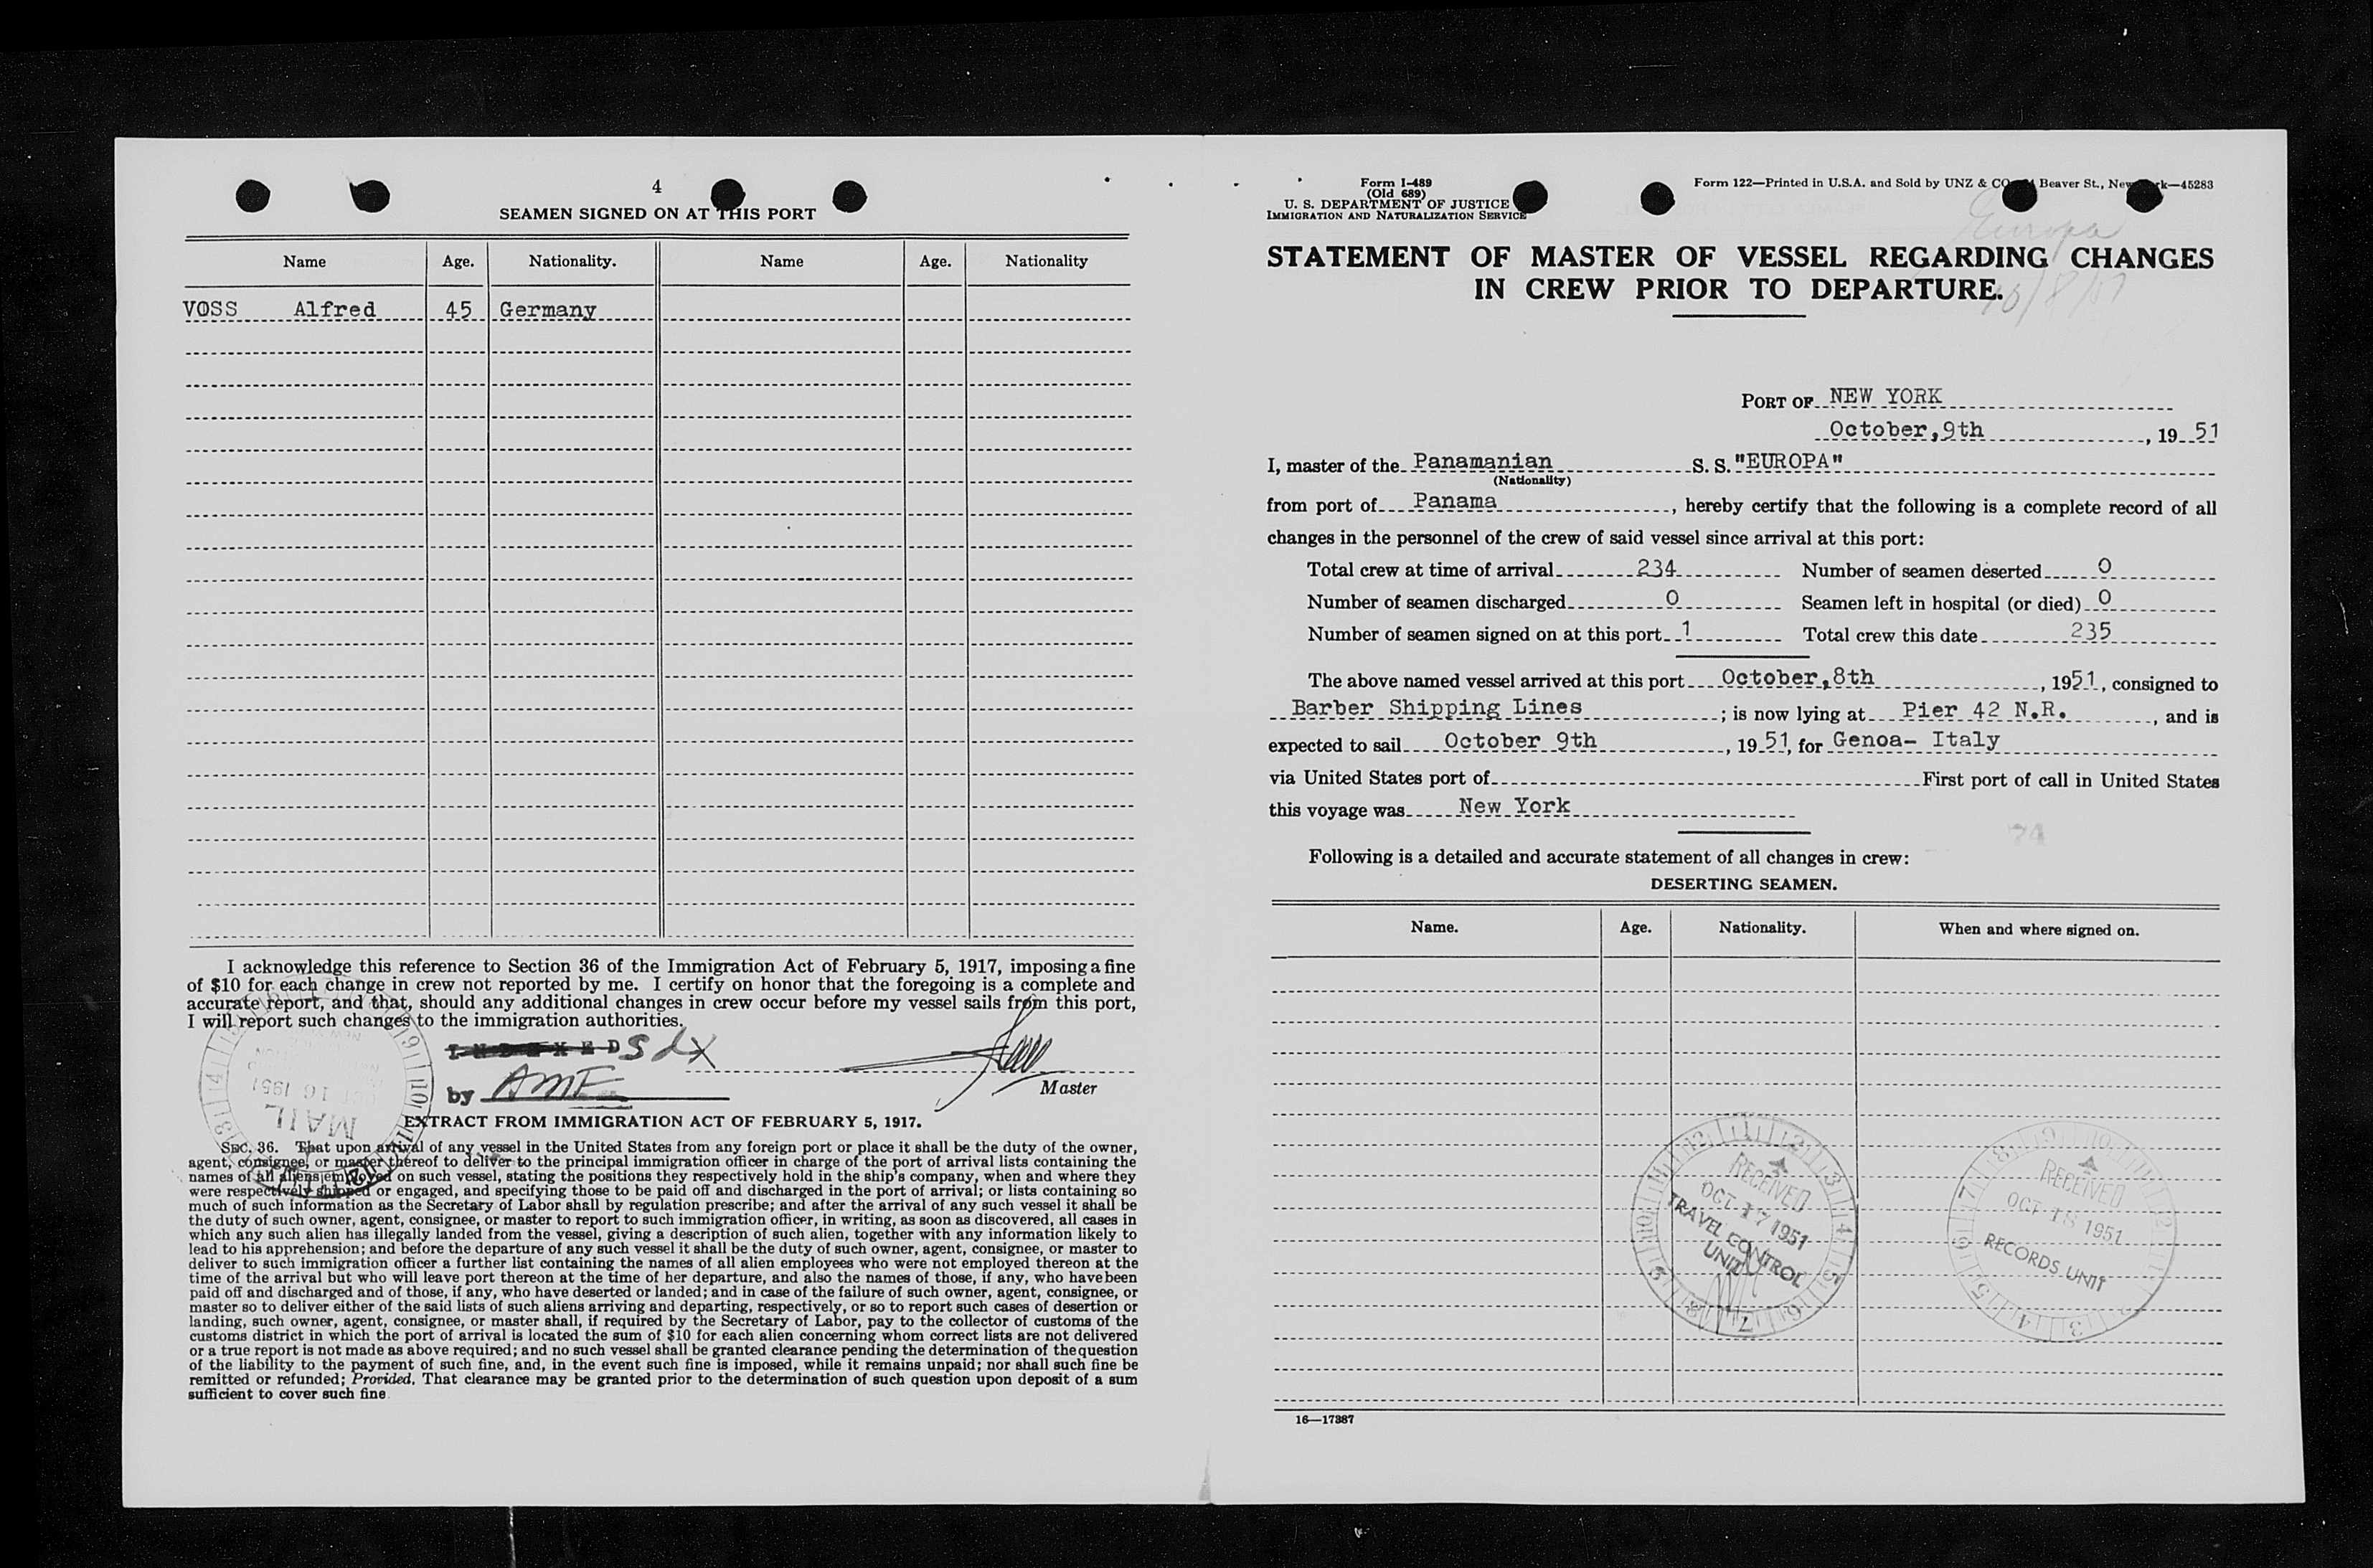 4
SEAMEN SIGNED ON AT THIS PORT
Name Age. Nationality. Name Age. Nationality
VOSS Alfred 45 Germany
I acknowledge this reference to Section 36 of the Immigration Act of February 5, 1917, imposing a fine
of $10 for each change in crew not reported by me. I certify on honor that the foregoing is a complete and
accurate report, and that, should any additional changes in crew occur before my vessel sails from this port,
I will report such changes to the immigration authorities.
INDEXED
Master
by AME
MAIL
1951
EXTRACT FROM IMMIGRATION ACT OF FEBRUARY 5, 1917.
SEC. 36. That upon arrival of any vessel in the United States from any foreign port or place it shall be the duty of the owner,
agent, consignee, or master thereof to deliver to the principal immigration officer in charge of the port of arrival lists containing the
names of all aliens employed on such vessel, stating the positions they respectively hold in the ship's company, when and where they
were respectively shipped or engaged, and specifying those to be paid off and discharged in the port of arrival; or lists containing so
much of such information as the Secretary of Labor shall by regulation prescribe; and after the arrival of any such vessel it shall be
the duty of such owner, agent, consignee, or master to report to such immigration officer, in writing, as soon as discovered, all cases in
which any such alien has illegally landed from the vessel, giving a description of such alien, together with any information likely to
lead to his apprehension; and before the departure of any such vessel it shall be the duty of such owner, agent, consignee, or master to
deliver to such immigration officer a further list containing the names of all alien employees who were not employed thereon at the
time of the arrival but who will leave port thereon at the time of her departure, and also the names of those, if any, who have been
paid off and discharged and of those, if any, who have deserted or landed; and in case of the failure of such owner, agent, consignee, or
master so to deliver either of the said lists of such aliens arriving and departing, respectively, or so to report such cases of desertion or
landing, such owner, agent, consignee, or master shall, if required by the Secretary of Labor, pay to the collector of customs of the
customs district in which the port of arrival is located the sum of $10 for each alien concerning whom correct lists are not delivered
or a true report is not made as above required; and no such vessel shall be granted clearance pending the determination of the question
of the liability to the payment of such fine, and, in the event such fine is imposed, while it remains unpaid; nor shall such fine be
remitted or refunded; Provided, That clearance may be granted prior to the determination of such question upon deposit of a sum
sufficient to cover such fine.
Form I-489
(Old 689)
U. S. DEPARTMENT OF JUSTICE
IMMIGRATION AND NATURALIZATION SERVICE
Form 122—Printed in U.S.A. and Sold by UNZ & CO Beaver St., New k—45283
Europa
STATEMENT OF MASTER OF VESSEL REGARDING CHANGES
IN CREW PRIOR TO DEPARTURE.
PORT OF NEW YORK
October,9th, 19 51
I, master of the Panamanian S. S. "EUROPA"
(Nationality)
from port of Panama, hereby certify that the following is a complete record of all
changes in the personnel of the crew of said vessel since arrival at this port:
Total crew at time of arrival 234 Number of seamen deserted 0
Number of seamen discharged 0 Seamen left in hospital (or died) 0
Number of seamen signed on at this port 1 Total crew this date 235
The above named vessel arrived at this port October,8th, 1951, consigned to
Barber Shipping Lines; is now lying at Pier 42 N.R., and is
expected to sail October 9th, 19 51, for Genoa- Italy
via United States port of First port of call in United States
this voyage was New York
Following is a detailed and accurate statement of all changes in crew:
DESERTING SEAMEN.
Name. Age. Nationality. When and where signed on.
RECEIVED
OCT 17 1951
TRAVEL CONTROL
UNIT
RECEIVED
OCT 18 1951
RECORDS UNIT
16—17387